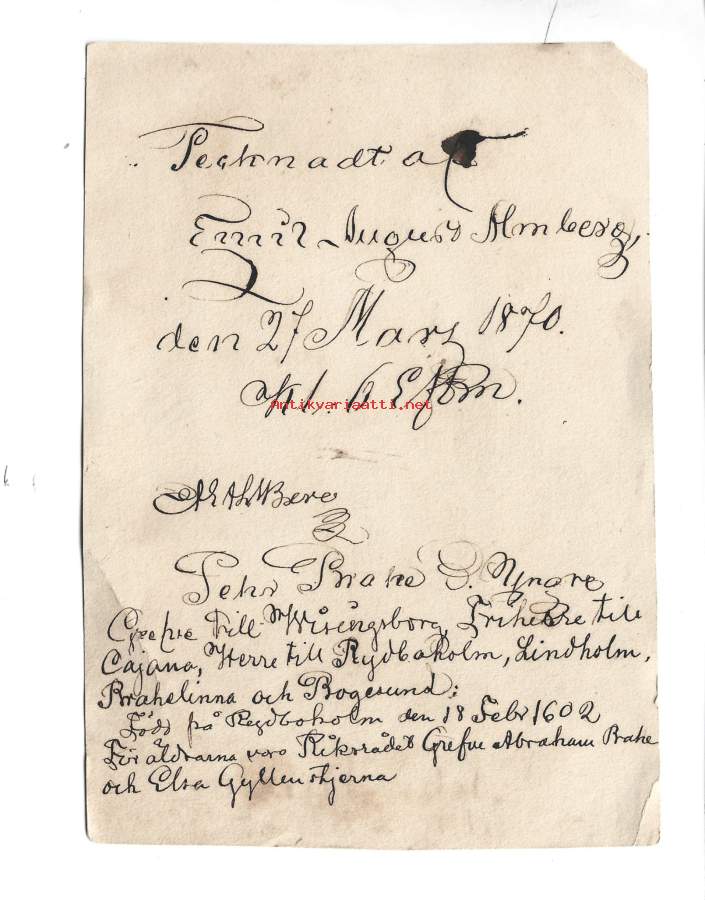 Tecknadt af
Emil August Almberg,
den 27 Mars 1870.
Kl. 6 Eftm.
Antikvariaatti.net
Pehr Brahe D. Yngre
Grefve till Wisingsborg, Friherre till
Cajana, Herre till Rydboholm, Lindholm,
Brahelinna och Bogesund;
Född på Reydboholm den 18 Febr 1602
Föräldrarna voro Riksrådet Grefve Abraham Brahe
och Elsa Gyllenstjerna